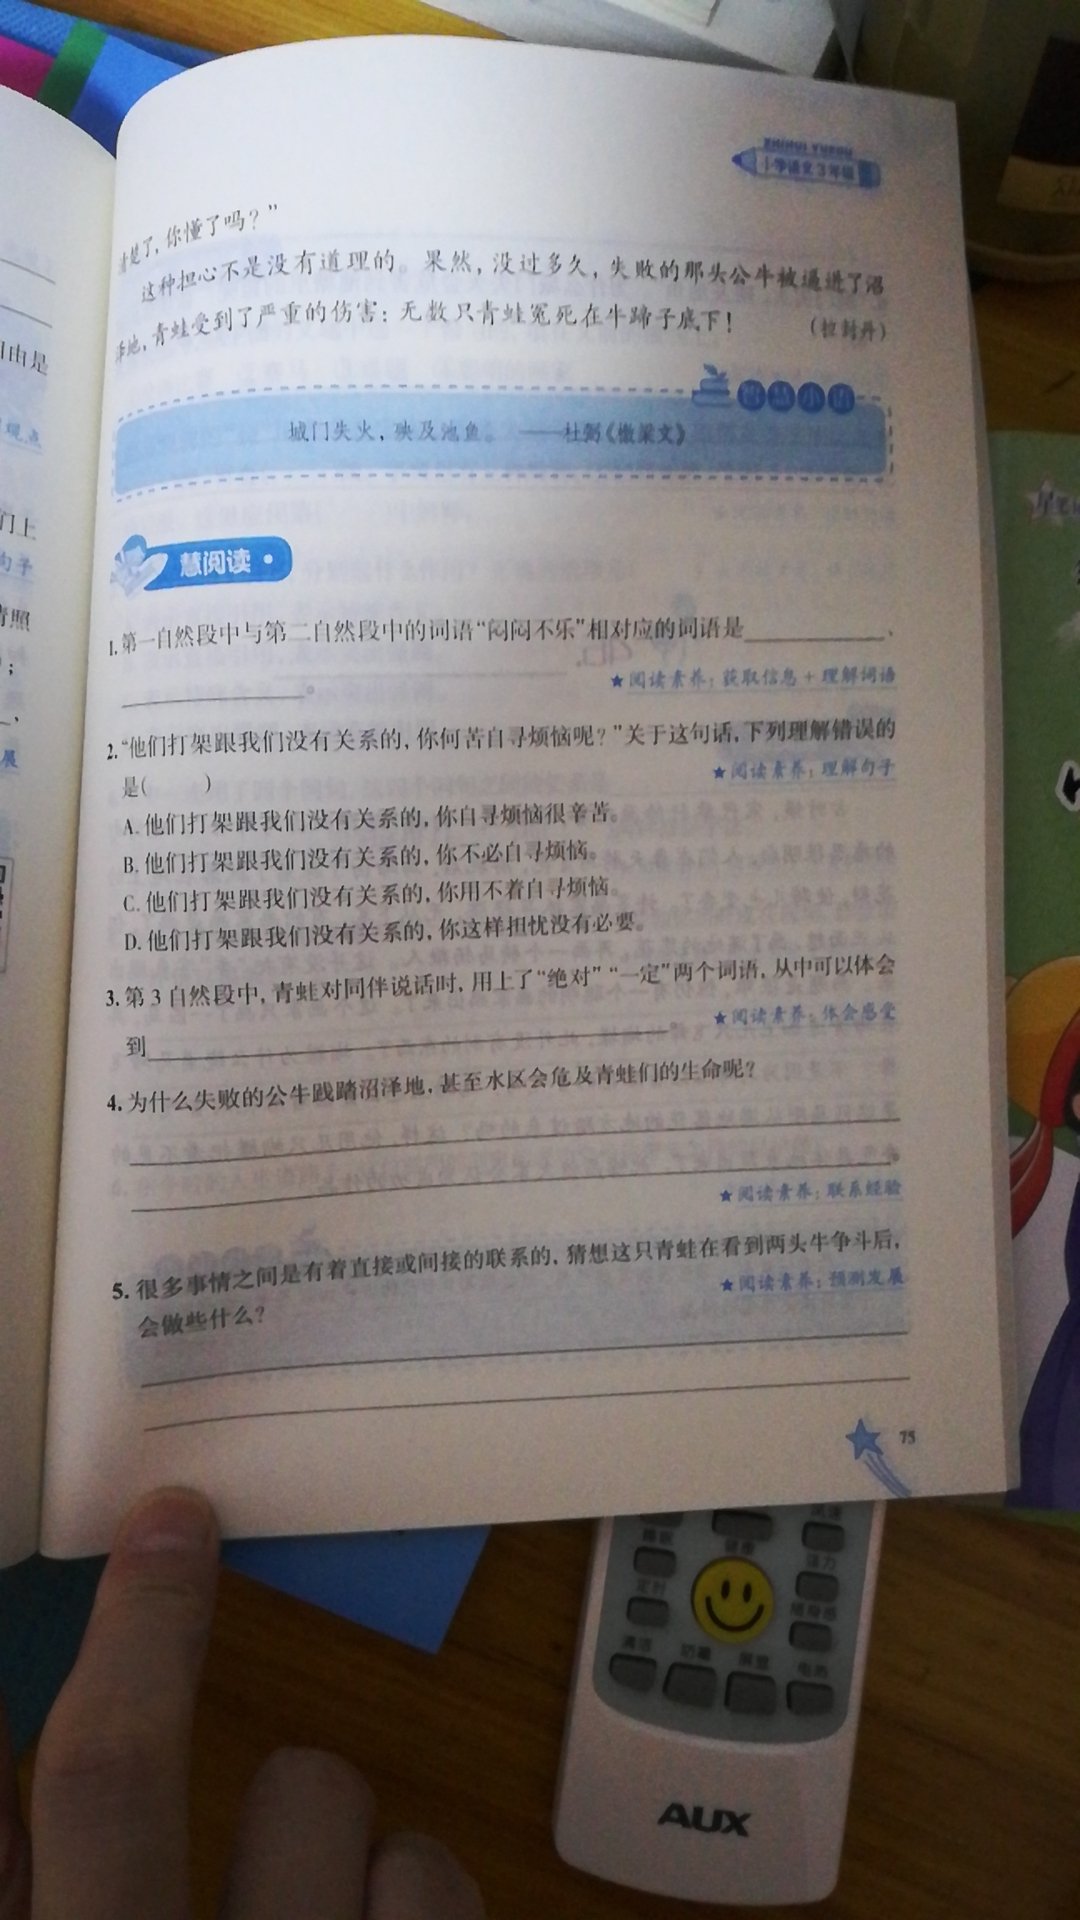 ZHIHUI YUEDU
小学语文3年级
清楚了，你懂了吗？”
这种担心不是没有道理的。果然，没过多久，失败的那头公牛被逼进了沼
泽地，青蛙受到了严重的伤害：无数只青蛙冤死在牛蹄子底下！ （拉封丹）
智慧小语
城门失火，殃及池鱼。 ——杜弼《檄梁文》
慧阅读
1.第一自然段中与第二自然段中的词语“闷闷不乐”相对应的词语是____________、
____________。
★阅读素养：获取信息+理解词语
2.“他们打架跟我们没有关系的，你何苦自寻烦恼呢？”关于这句话，下列理解错误的
是（ ）
★阅读素养：理解句子
A.他们打架跟我们没有关系的，你自寻烦恼很辛苦。
B.他们打架跟我们没有关系的，你不必自寻烦恼。
C.他们打架跟我们没有关系的，你用不着自寻烦恼。
D.他们打架跟我们没有关系的，你这样担忧没有必要。
3.第3自然段中，青蛙对同伴说话时，用上了“绝对”“一定”两个词语，从中可以体会
到____________。
★阅读素养：体会感受
4.为什么失败的公牛践踏沼泽地，甚至水区会危及青蛙们的生命呢？
____________。
★阅读素养：联系经验
5.很多事情之间是有着直接或间接的联系的，猜想这只青蛙在看到两头牛争斗后，
会做些什么？
★阅读素养：预测发展
75
由是
观点
们上
句子
情照
；
、
展
睡眠
健康
风速
定时
强力
随身感
清洁
防霉
屏显
电热
AUX